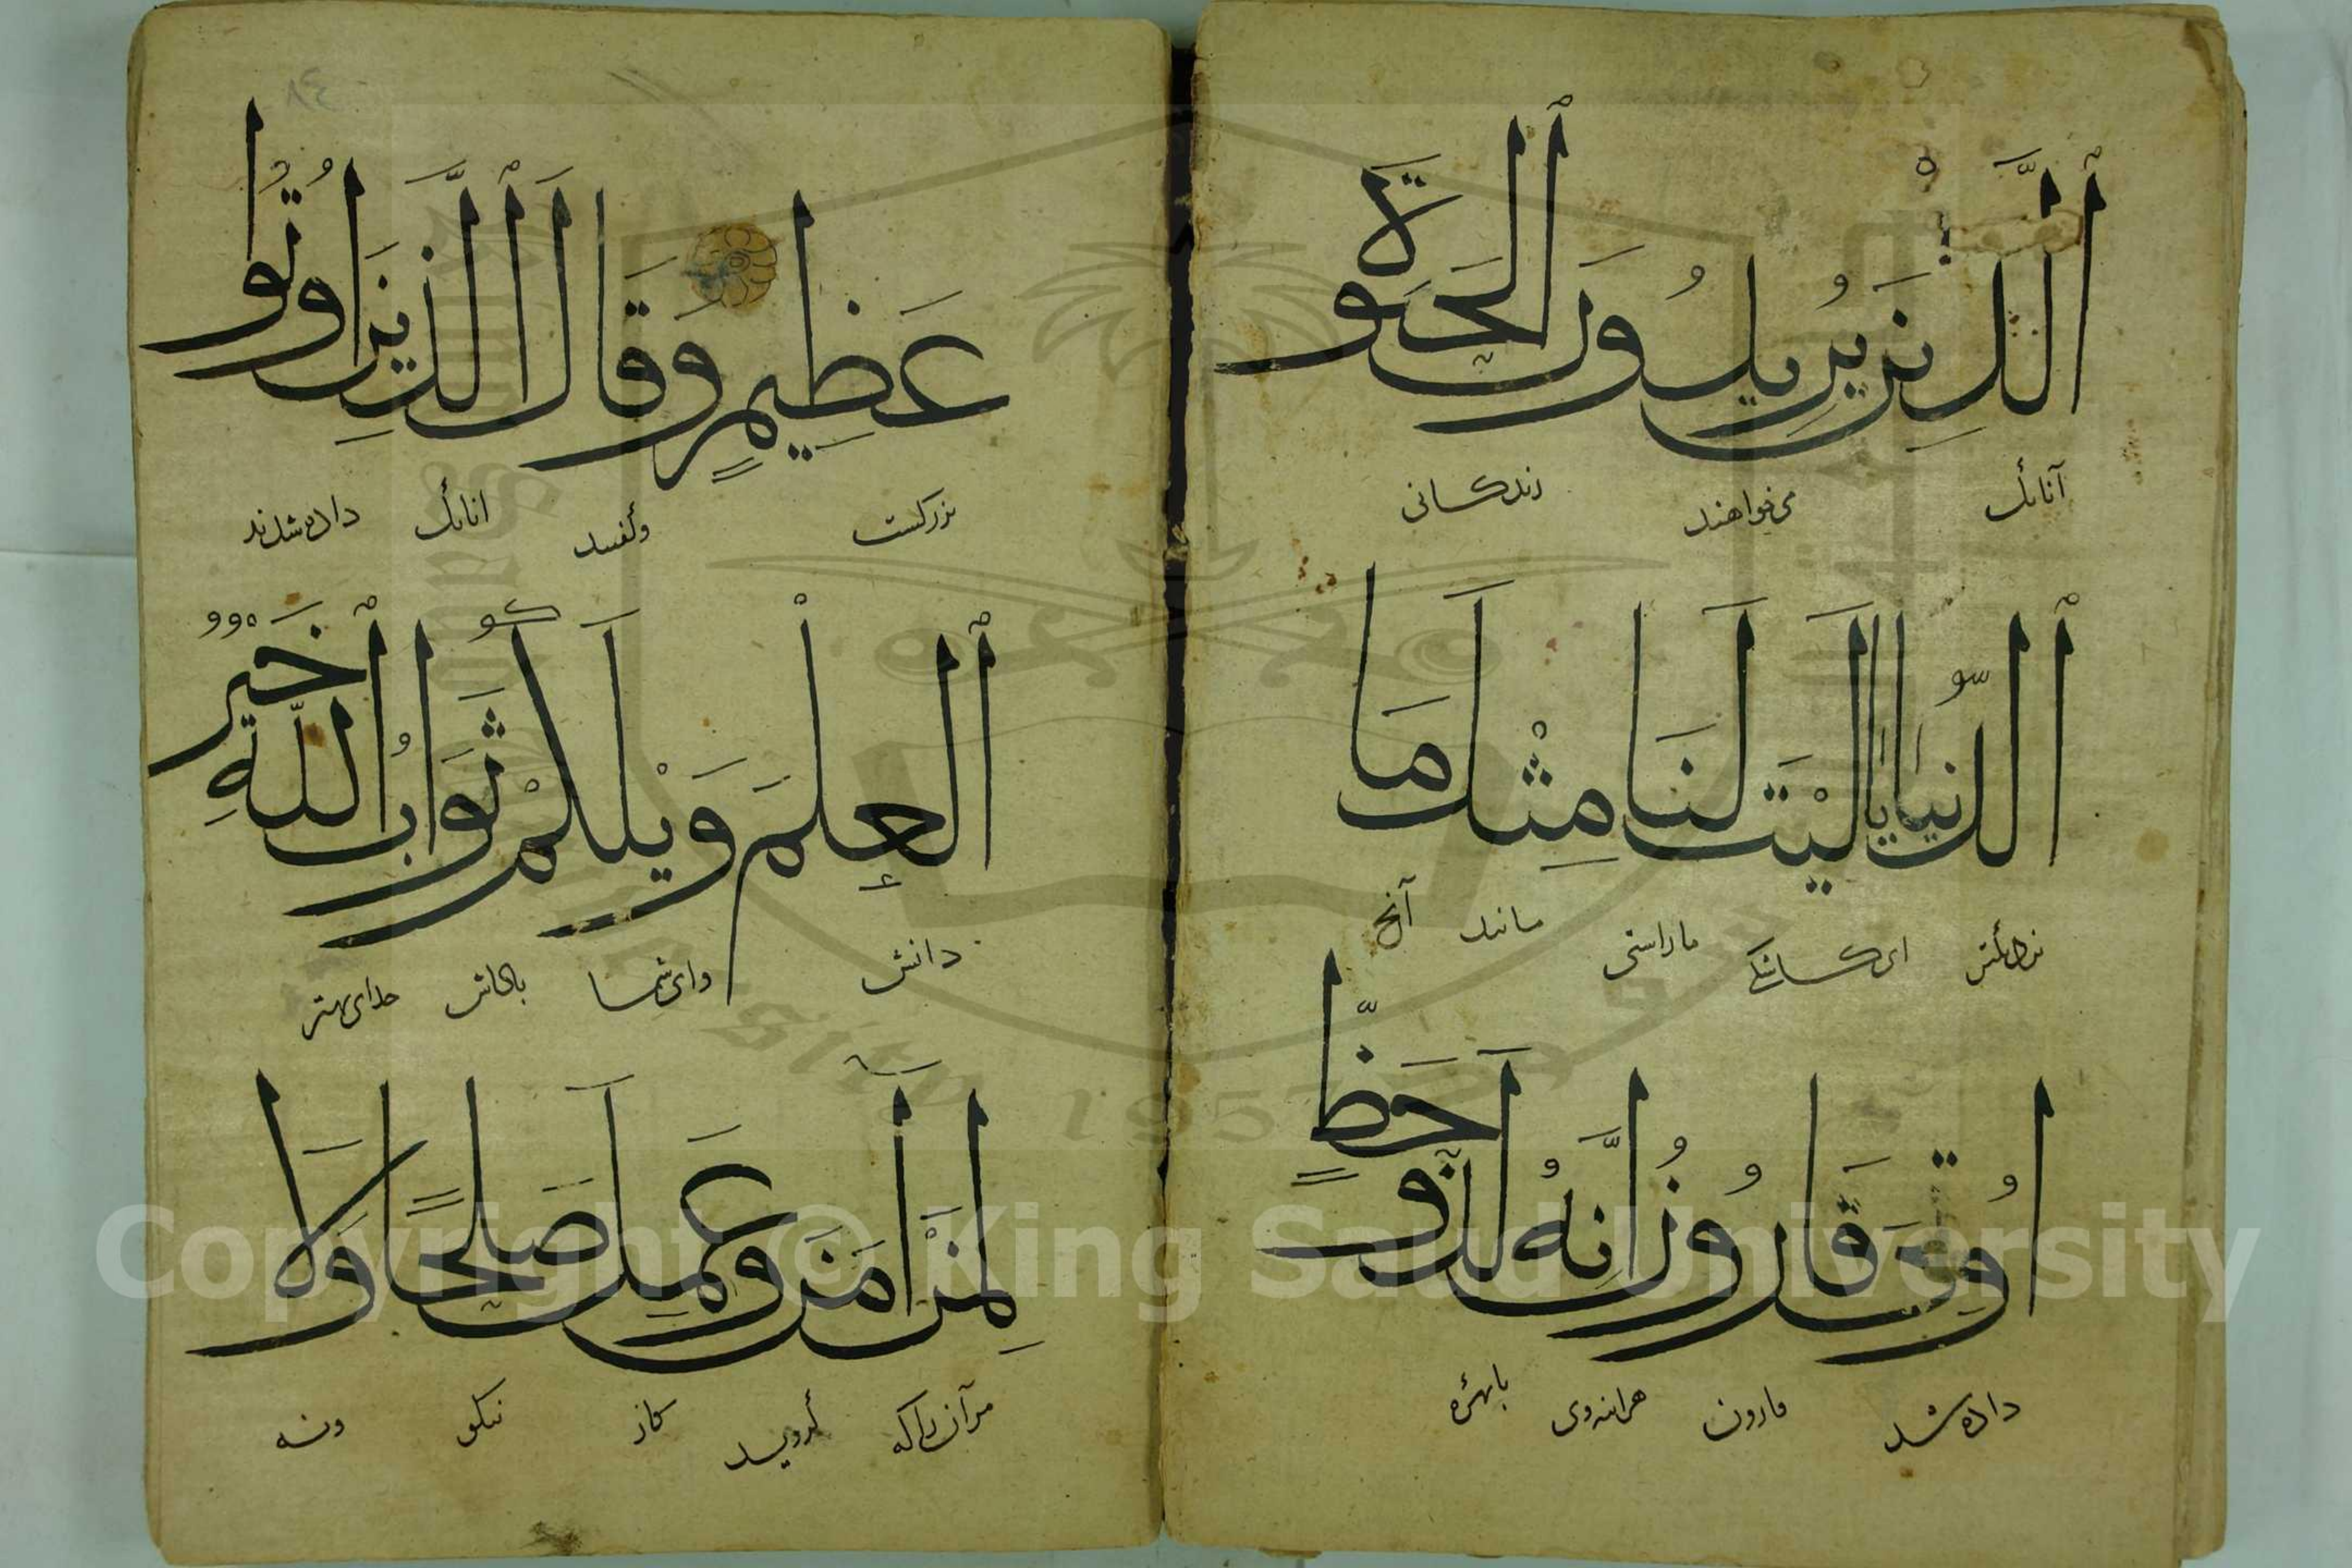 ٱلَّذِينَ يُرِيدُونَ ٱلْحَيَوٰةَ
آنانك می‌خواهند زندكانی
ٱلدُّنْيَا يَالَيْتَ لَنَا مِثْلَ مَا
ای كاشكی ماراستی مانند آنچ
اُوتِىَ قَارُونُ اِنَّهُ لَذُو حَظٍّ
داده شد قارون هراینه وی بابهرۀ
عَظِيمٍ وَقَالَ ٱلَّذِينَ اُوتُوا
بزركست وكفتند انانك داده شدند
ٱلْعِلْمَ وَيْلَكُمْ ثَوَابُ ٱللّٰهِ خَيْرٌ
دانش وای شما پاداش خدای بهتر
لِمَنْ آمَنَ وَعَمِلَ صَلِحًا وَلَا
مرآن راكه كروید كار نیكو ونه
٨٤
Copyright © King Saud University
King Saud University 1957